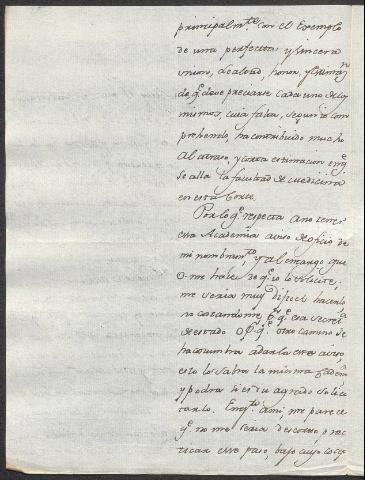 principalm.te con el exemplo
de una perfecta y sincera
union, lealtad, honor, y estimaz.n
de q.e deve preciarse cada uno de los
mismos, cuia falta, segun to com
prehendo, ha contribuido mucho
al atraso, y corta estimacion en q.e
se alla la facultad de medicina
en esta Corte.
Por lo q.e respecta a no tener
essa Academia aviso de oficio de
mi nombram.to, y al encargo que
V. me hace de q.e io lo solicite;
me seria muy dificil hacerlo,
no constandome, si q.e esa secret.a
de estado o p.r q.e otro camino se
hacostumbra a dar los esos avisos,
esto lo sabra la misma Academ.a
y podra si es de su agrado solici
tarlo. En q.to a mi, me parece
q.e no me seria decoroso, prac
ticar este paso, bajo cuio